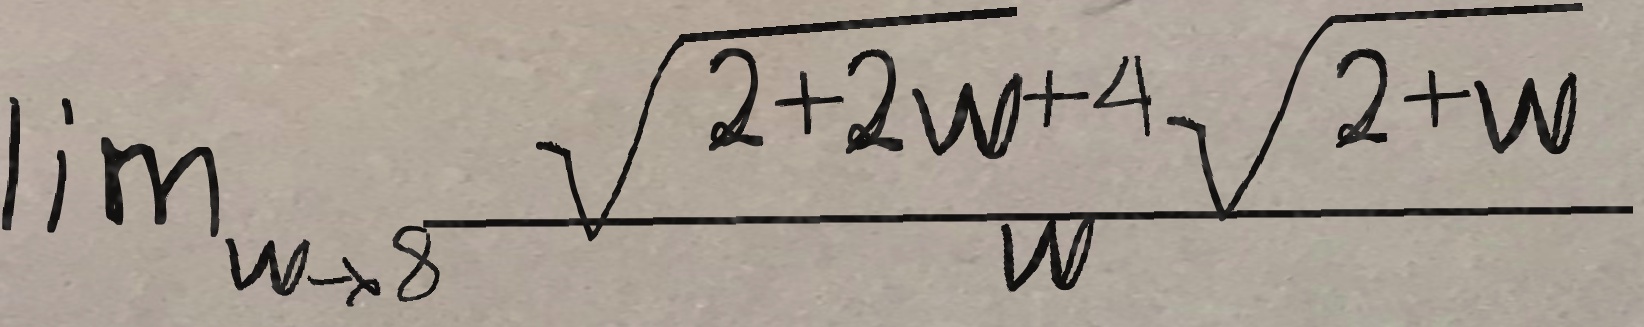 \lim_{w \to 8} \frac{\sqrt{2+2w}+4\sqrt{2+w}}{w}